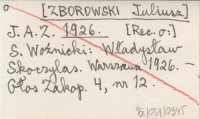 [ZBOROWSKI Juliusz]
J.A.Z. 1926. [Rec. o:]
S. Woźnicki: Władysław
Skoczylas. Warszawa 1926. —
Głos Zakop. 4, nr 12.